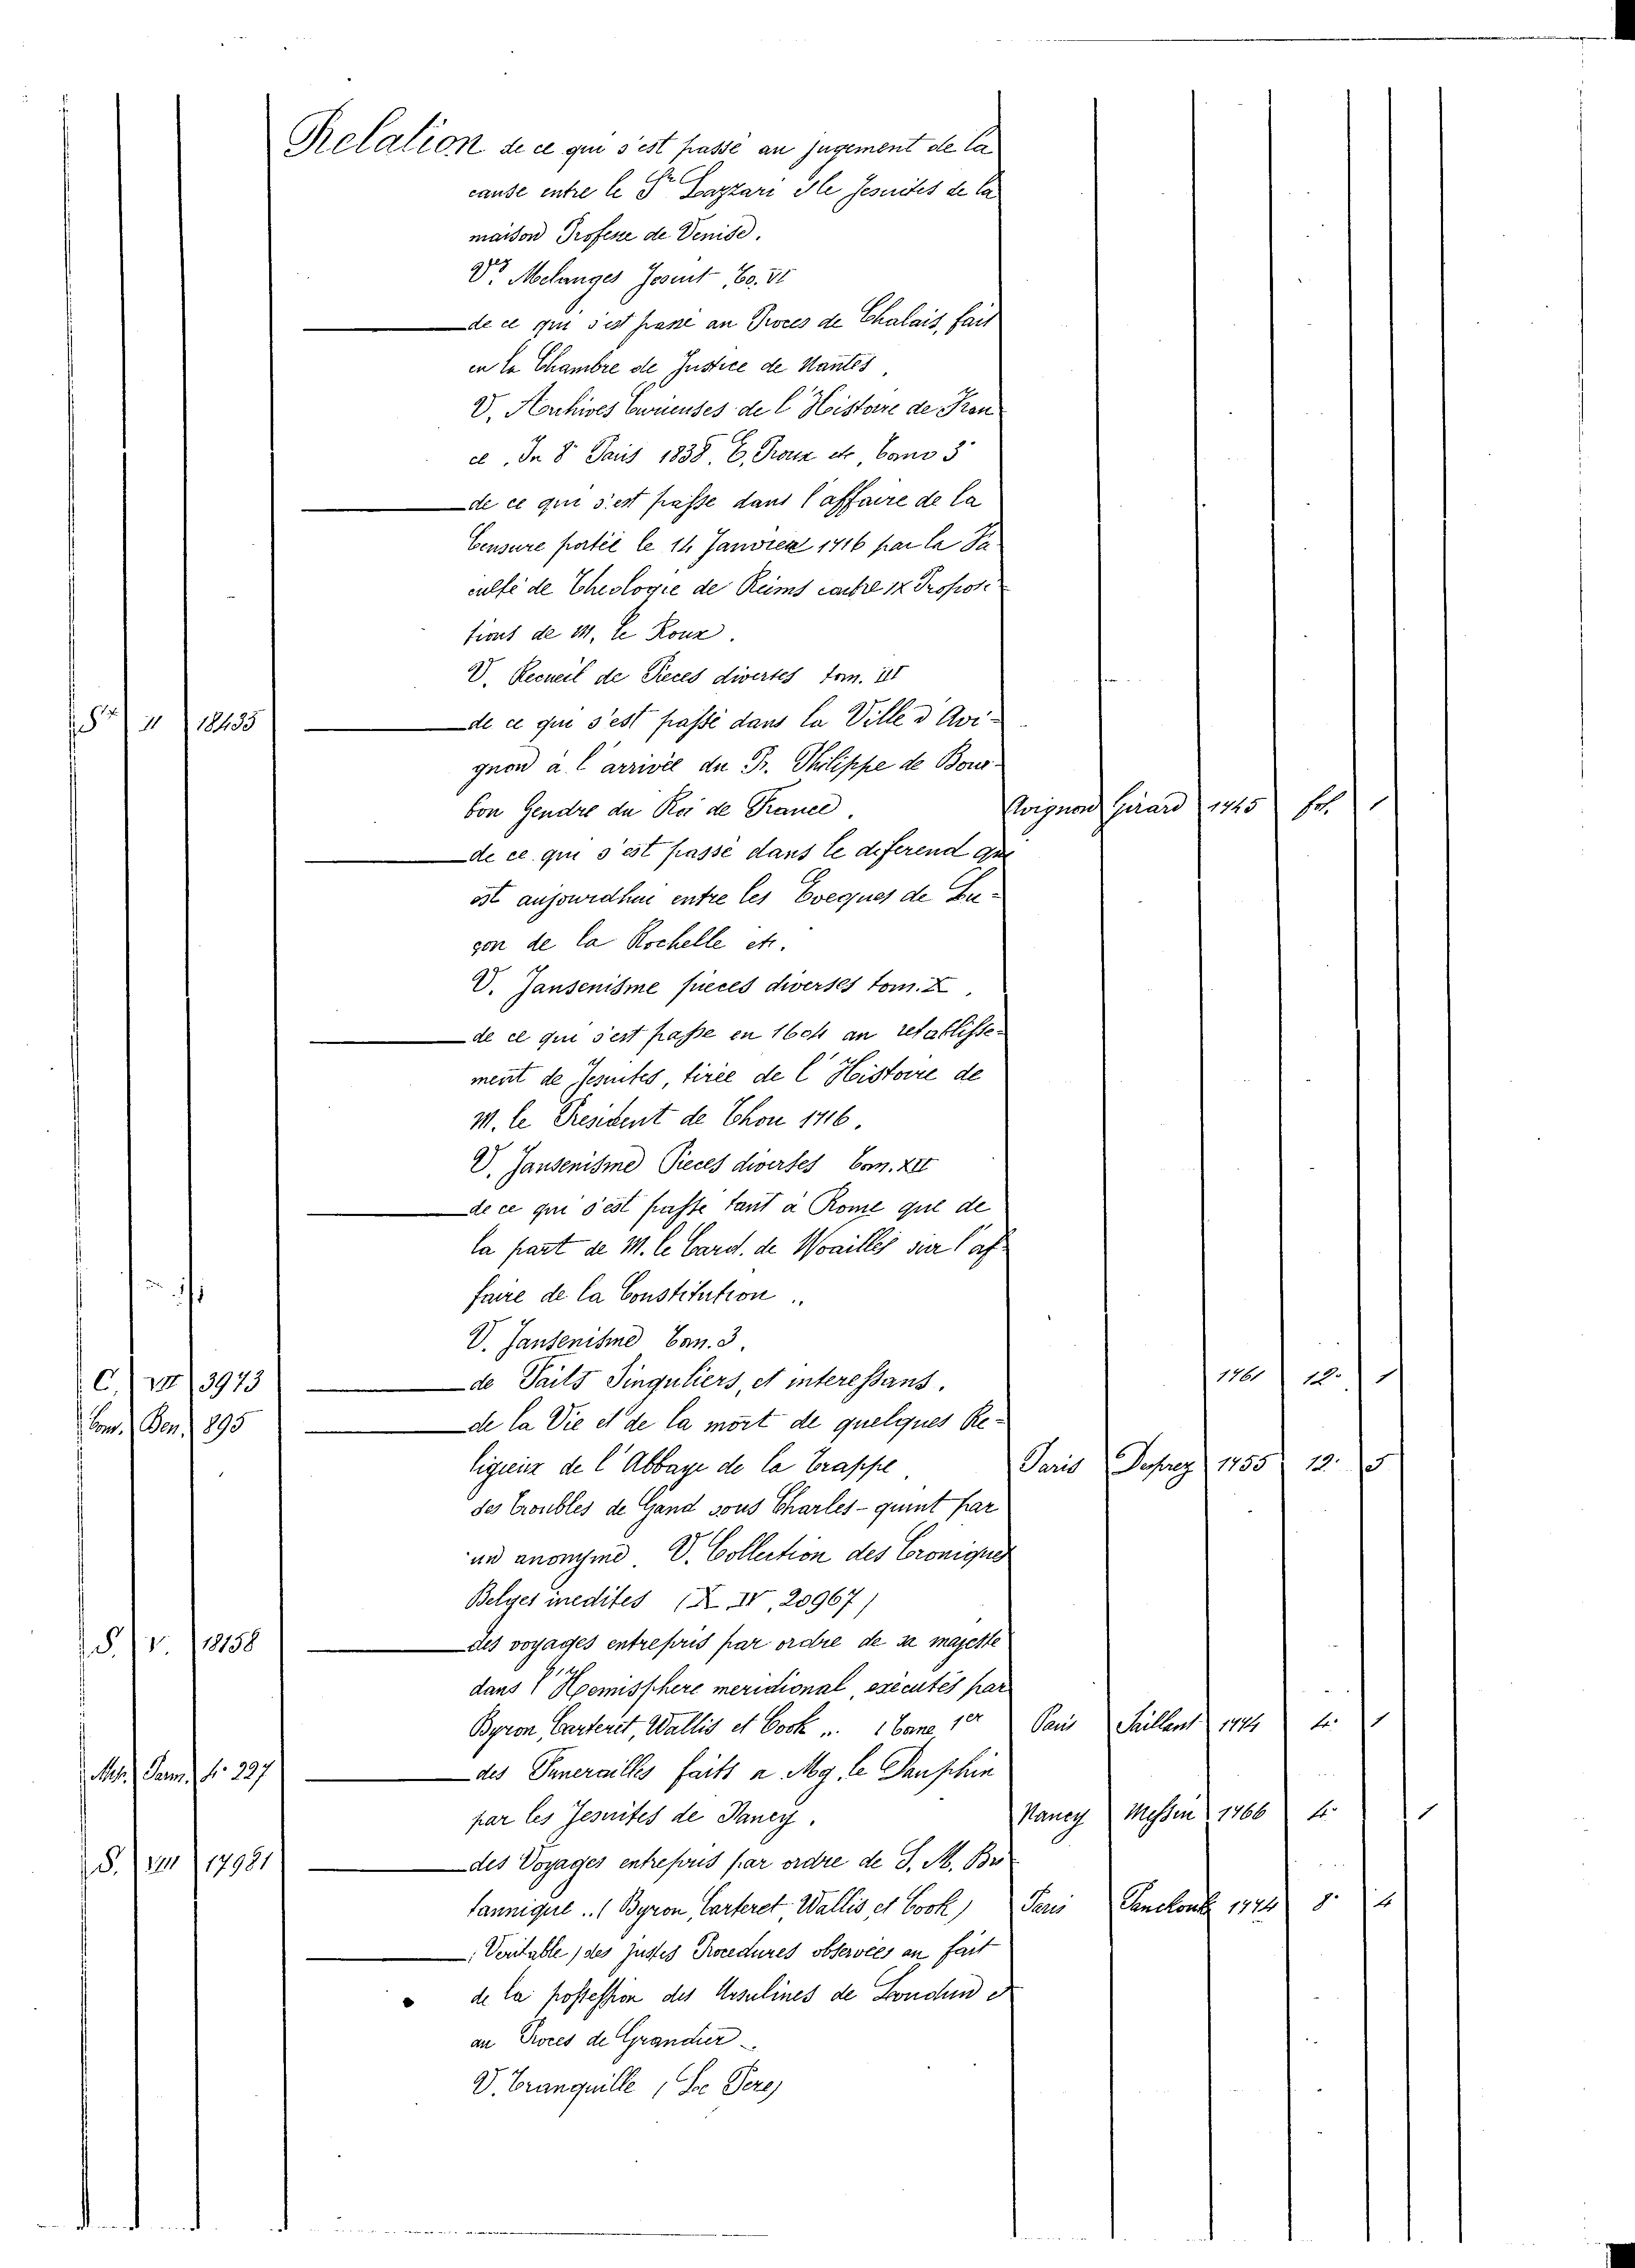 Relation de ce qui s'est passé au jugement de la
cause entre le Sr Lazzari & le Jesuites de la
maison Professe de Venise.
V. Melanges Jesuit, to. VI
de ce qui s'est passé au Proces de Chalais, fait
en la Chambre de Justice de Nantes,
V. Archives Curieuses de l'Histoire de Fran
ce, In 8° Paris 1838. tom 3°
de ce qui s'est passe dans l'affaire de la
Censure portée le 14 Janvier 1716 par la Fa
culté de Theologie de Reims contre 12 Proposi
tions de M. le Roux.
V. Recueil de Pieces diverses tom. III
II 18435 de ce qui s'est passé dans la Ville d'Avi-
gnon à l'arrivée du Pr. Philippe de Bour-
bon Gendre du Roi de France. Avignon Girard 1745 fol. 1
de ce qui s'est passé dans le diferend qui
est aujourdhui entre les Eveques de Lu-
çon de la Rochelle etc.
V. Jansenisme pieces diverses tom. X.
de ce qui s'est passe en 1604 au retablisse-
ment de Jesuites, tirée de l'Histoire de
M. le President de Thou 1716.
V. Jansenisme Pieces diverses tom. XII
de ce qui s'est passe tant à Rome que de
la part de M. le Card. de Noailles sur l'af
faire de la Constitution..
V. Jansenisme tom. 3.
C. VII 3973 de Faits Singuliers, et interessans. 1761 12° 1
Com. Ben. 895 de la Vie et de la mort de quelques Re-
ligieux de l'Abbaye de la Trappe. Paris Desprez 1755 12. 5
des troubles de Gand sous Charles-quint par
un anonyme. V. Collection des Croniques
Belges inedites (X IV, 20967)
S. V. 18158 des voyages entrepris par ordre de sa majeste
dans l'Hemisphere meridional, exécutés par
Byron, Carteret, Wallis et Cook.. Tome 1er Paris Saillant 1774 4. 1
Parm. f. 227 des Funerailles faits a Mg. le Dauphin
par les Jesuites de Nancy. Nancy Messin 1766 4. 1
S. VIII 17981 des Voyages entrepris par ordre de S. M. Bri
tannique.. (Byron, Carteret, Wallis, et Cook) Paris Panckouk 1774 8. 4
(Veritable) des justes Procedures observées au fait
de la possession des Ursulines de Loudun et
au Proces de Grandier.
V. Tranquille (Le Pere)